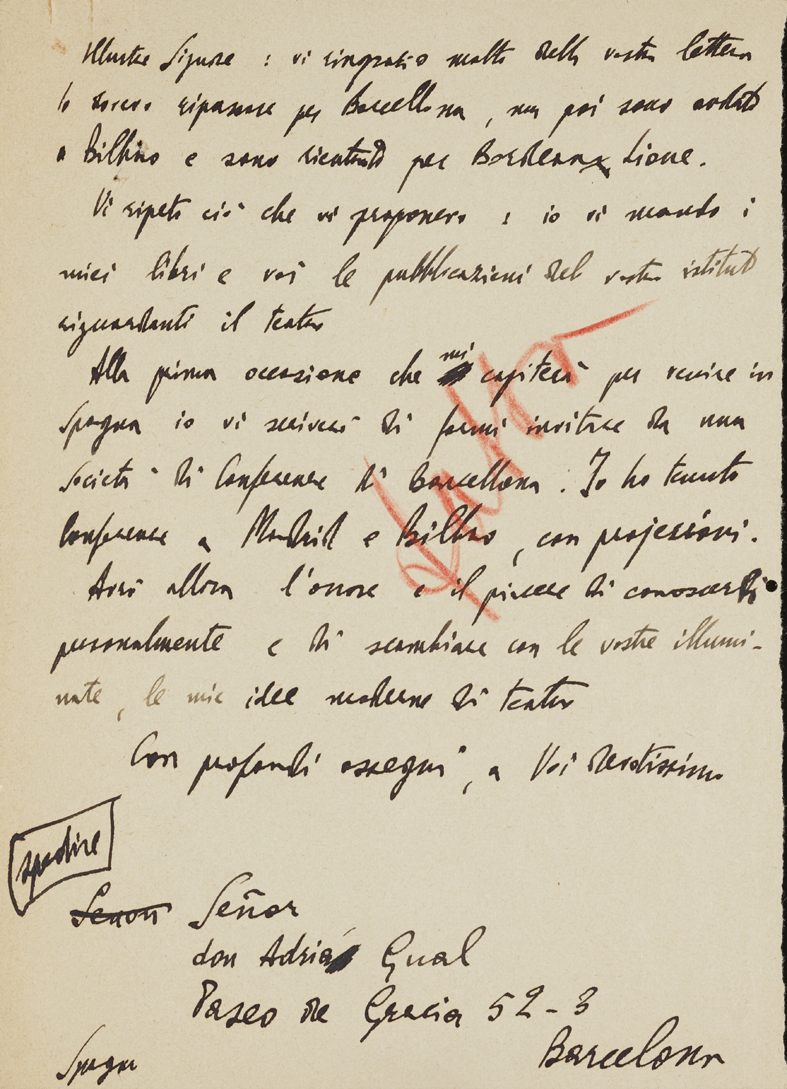 Illustre Signore : vi ringrazio molto della vostra lettera
Io dovevo ripassare per Barcellona, ma poi sono andato
a Bilbao e sono rientrato per Bordeaux Lione.
Vi ripeto ciò che vi proponevo : io vi mando i
miei libri e voi le pubblicazioni del vostro istituto
riguardanti il teatro
Alla prima occasione che mi capiterà per venire in
Spagna io vi scriverò di farmi invitare da una
Società di Conferenze di Barcellona. Io ho tenuto
Conferenze a Madrid e Bilbao, con projezioni.
Avrò allora l'onore e il piacere di conoscervi
personalmente e di scambiare con le vostre illumi-
nate, le mie idee moderne di teatro
Con profondi ossequi, a Voi devotissimo
spedire
Señor
don Adriá Gual
Paseo de Gracia 52-3
Barcelona
Spagna